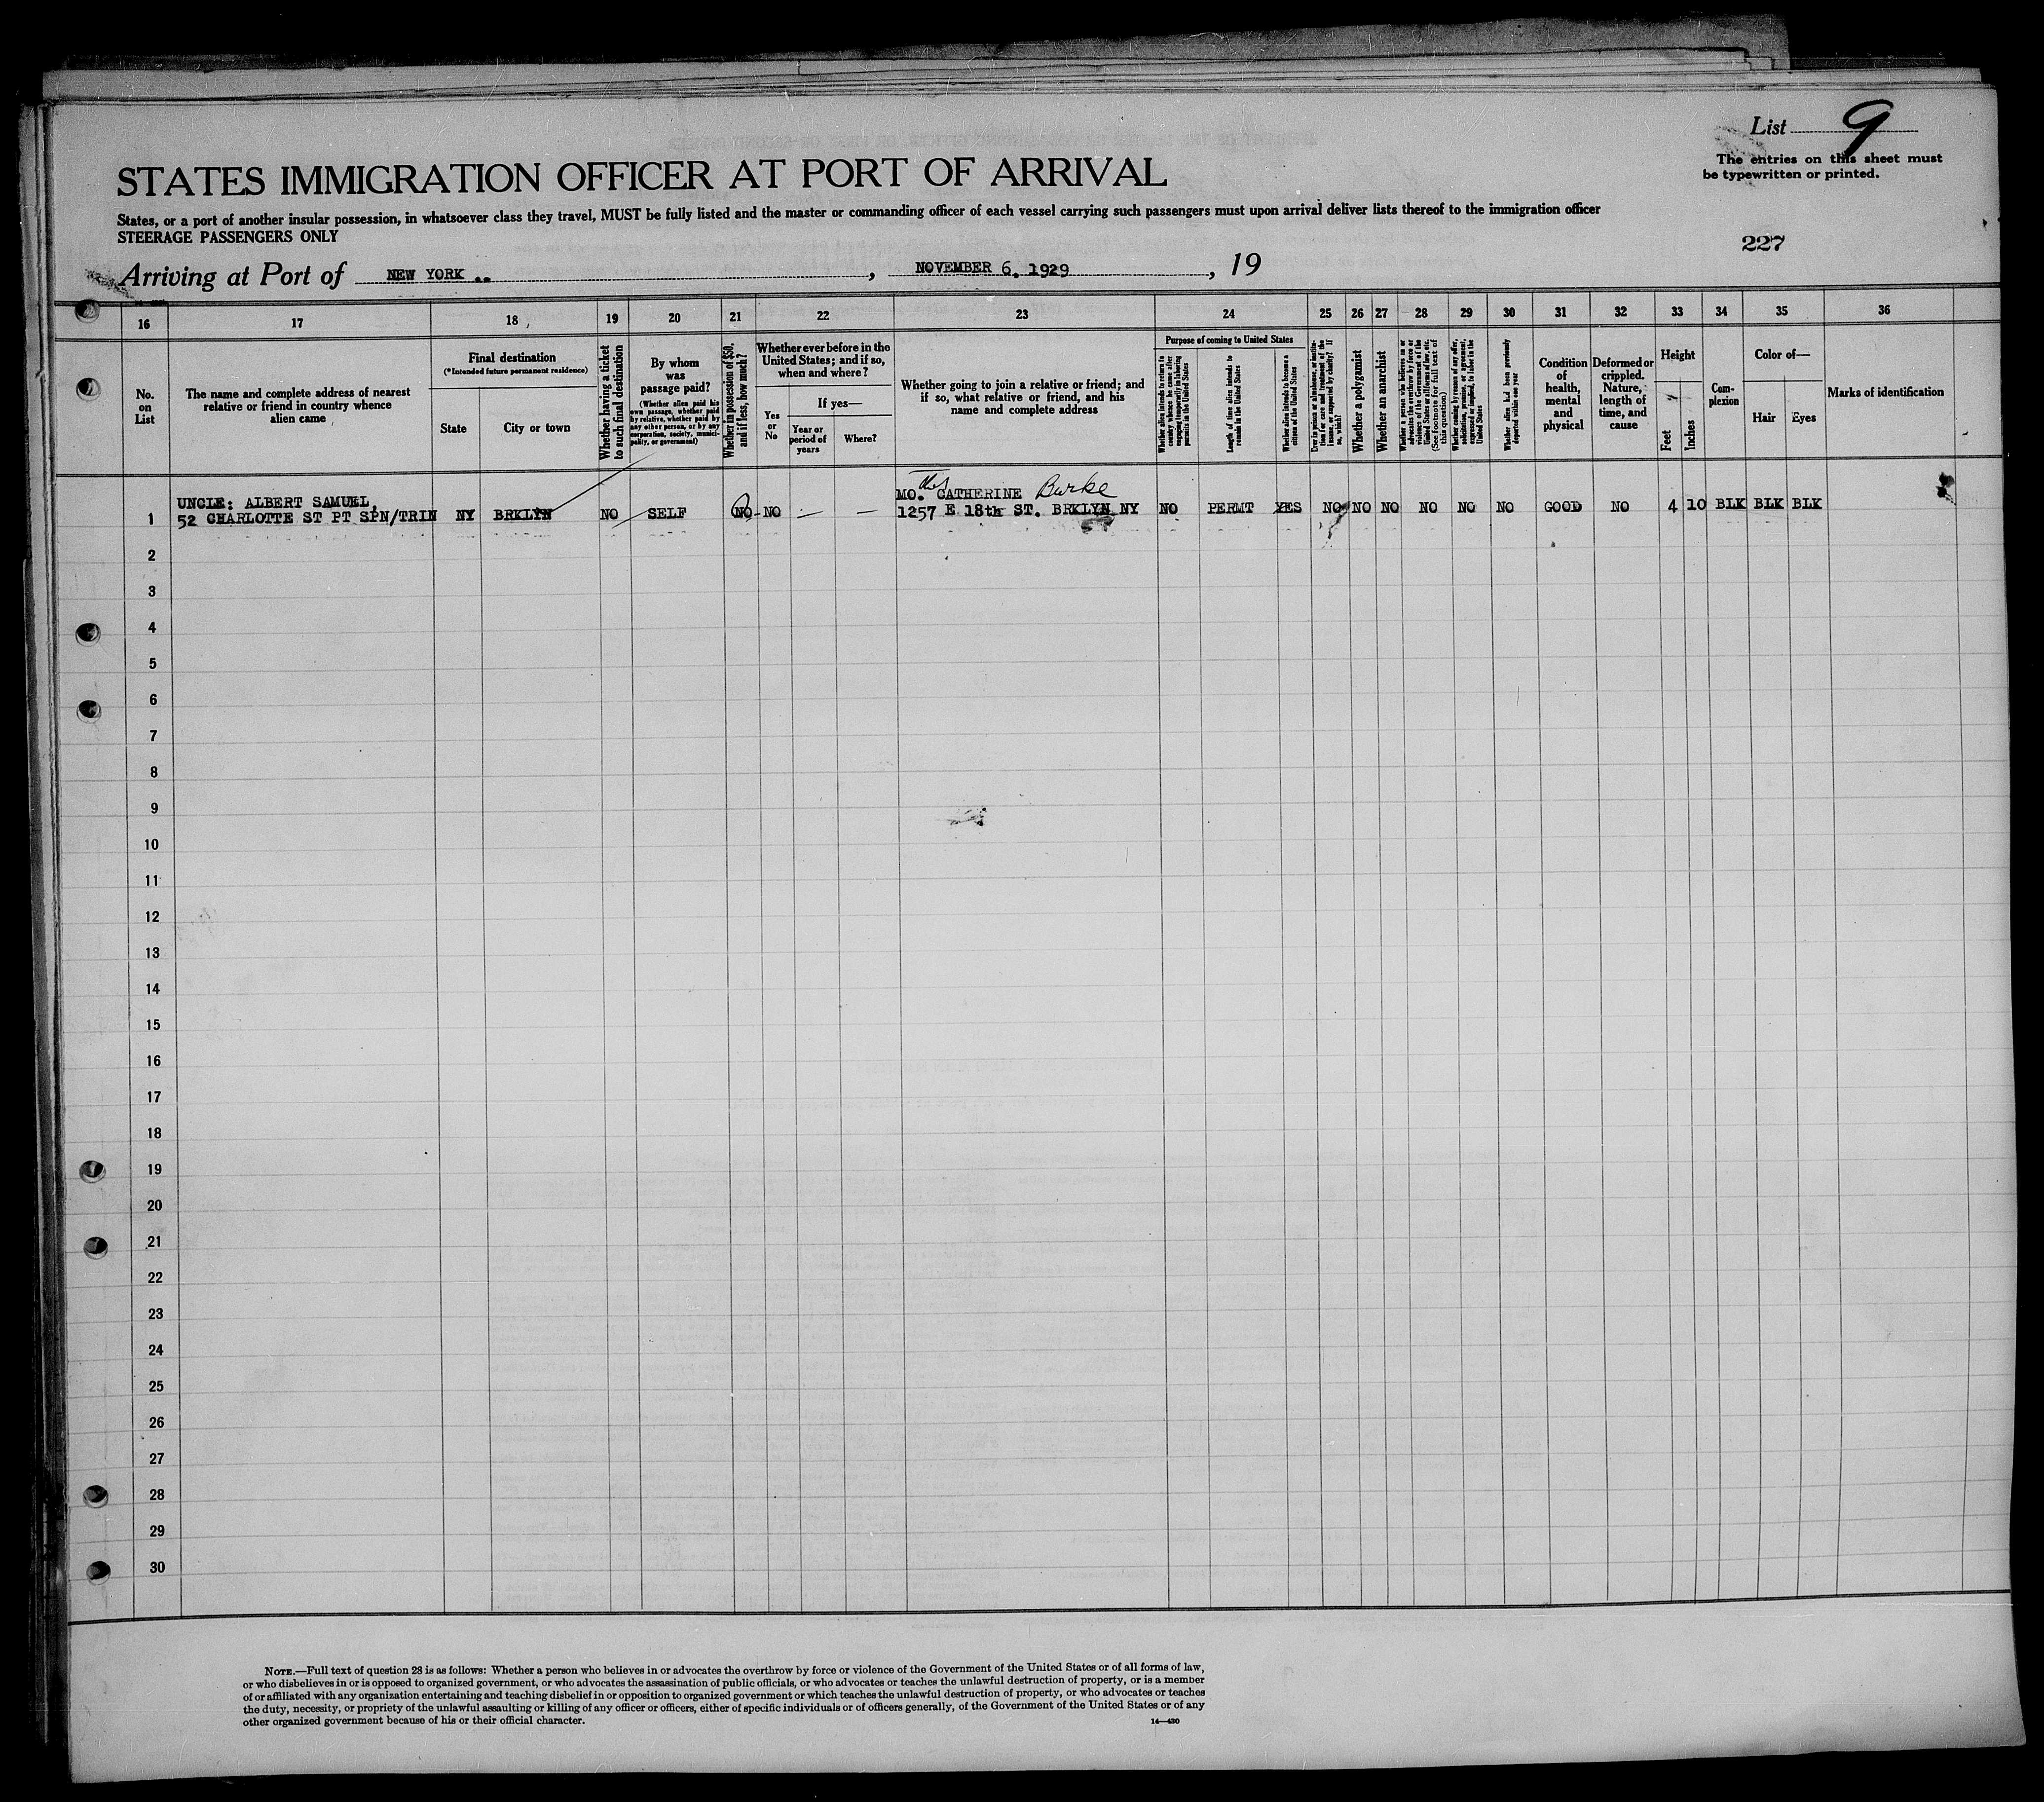 List 9
The entries on this sheet must
be typewritten or printed.
STATES IMMIGRATION OFFICER AT PORT OF ARRIVAL
States, or a port of another insular possession, in whatsoever class they travel, MUST be fully listed and the master or commanding officer of each vessel carrying such passengers must upon arrival deliver lists thereof to the immigration officer
STEERAGE PASSENGERS ONLY
227
Arriving at Port of NEW YORK , NOVEMBER 6, 1929 , 19
16 17 18 19 20 21 22 23 24 25 26 27 28 29 30 31 32 33 34 35 36
No.
on
List
The name and complete address of nearest
relative or friend in country whence
alien came
Final destination
(*Intended future permanent residence)
State
City or town
Whether having a ticket
to such final destination
By whom
was
passage paid?
(Whether alien paid his
own passage, whether paid
by relative, whether paid by
any other person, or by any
corporation, society, munici-
pality, or government)
Whether in possession of $50,
and if less, how much?
Whether ever before in the
United States; and if so,
when and where?
Yes
or
No
If yes—
Year or
period of
years
Where?
Whether going to join a relative or friend; and
if so, what relative or friend, and his
name and complete address
Purpose of coming to United States
Whether alien intends to return to
country whence he came after
engaging temporarily in laboring
pursuits in the United States
Length of time alien intends to
remain in the United States
Whether alien intends to become a
citizen of the United States
Ever in prison or almshouse, or institu-
tion for care and treatment of the
insane, or supported by charity? If
so, which?
Whether a polygamist
Whether an anarchist
Whether a person who believes in or
advocates the overthrow by force or
violence of the Government of the
United States or all forms of law, etc.
(See footnote for full text of
this question)
Whether coming by reason of any offer,
solicitation, promise, or agreement,
expressed or implied, to labor in the
United States
Whether alien had been previously
deported within one year
Condition
of
health,
mental
and
physical
Deformed or
crippled.
Nature,
length of
time, and
cause
Height
Feet
Inches
Com-
plexion
Color of—
Hair
Eyes
Marks of identification
UNCLE: ALBERT SAMUEL, MO. ther CATHERINE Burke
1 52 CHARLOTTE ST PT SPN/TRIN NY BRKLYN NO SELF NO NO — — 1257 E 18th ST. BRKLYN NY NO PERMT YES NO NO NO NO NO NO GOOD NO 4 10 BLK BLK BLK
2
3
4
5
6
7
8
9
10
11
12
13
14
15
16
17
18
19
20
21
22
23
24
25
26
27
28
29
30
NOTE.—Full text of question 28 is as follows: Whether a person who believes in or advocates the overthrow by force or violence of the Government of the United States or of all forms of law,
or who disbelieves in or is opposed to organized government, or who advocates the assassination of public officials, or who advocates or teaches the unlawful destruction of property, or is a member
of or affiliated with any organization entertaining and teaching disbelief in or opposition to organized government or which teaches the unlawful destruction of property, or who advocates or teaches
the duty, necessity, or propriety of the unlawful assaulting or killing of any officer or officers, either of specific individuals or of officers generally, of the Government of the United States or of any
other organized government because of his or their official character.
14—430